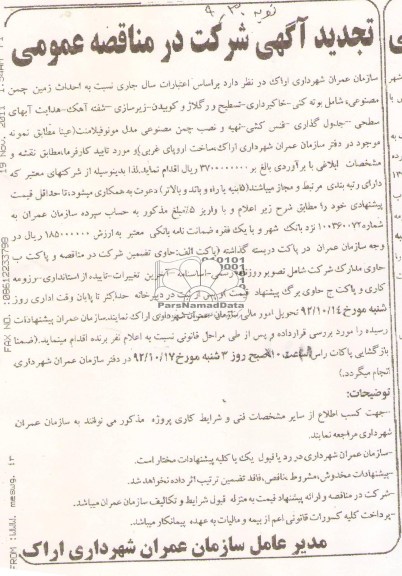 نوبت
تجدید آگهی شرکت در مناقصه عمومی
سازمان عمران شهرداری اراک در نظر دارد براساس اعتبارات سال جاری نسبت به احداث زمین چمن
مصنوعی، شامل بوته کنی -خاکبرداری-تسطیح و رگلاژ و کوبیدن-زیرسازی -شفته آهک-هدایت آبهای
سطحی -جدول گذاری -فنس کشی-تهیه و نصب چمن مصنوعی مدل مونوفیلامنت(عینا مطابق نمونه
موجود در دفتر سازمان عمران شهرداری اراک،ساخت اروپای غربی)و مورد تایید کارفرما،مطابق نقشه و
مشخصات ابلاغی با برآوردی بالغ بر ۳۷۰۰۰۰۰۰۰۰ ریال اقدام نماید.لذا بدینوسیله از شرکتهای معتبر که
دارای رتبه بندی مرتبط و مجاز میباشند(۵ابنیه یا راه و باند و بالاتر) دعوت به همکاری میشود،تا حداقل قیمت
پیشنهادی خود را مطابق شرح زیر اعلام و با واریز ۵٪مبلغ مذکور به حساب سپرده سازمان عمران به
شماره۱۰۰۳۶۰۰۷۲ نزد بانک شهر و یا یک فقره ضمانت نامه بانکی معتبر به ارزش ۱۸۵۰۰۰۰۰۰ ریال در
وجه سازمان عمران در پاکت دربسته گذاشته (پاکت الف:حاوی تضمین شرکت در مناقصه و پاکت ب
حاوی مدارک شرکت شامل تصویر روزنامه رسمی-اساسنامه-آخرین تغییرات-تاییده از استانداری-رزومه
کاری و پاکت ج حاوی برگ پیشنهاد قیمت و پس از ثبت در دبیرخانه حداکثر تا پایان وقت اداری روز
شنبه مورخ ۹۲/۱۰/۱۴ تحویل امور مالی سازمان عمران شهرداری اراک نمایند.سازمان عمران پیشنهادات
رسیده را مورد بررسی قرارداده و پس از طی مراحل قانونی نسبت به اعلام نفر برنده اقدام مینماید.(ضمنا
بازگشایی پاکات راس ساعت ۱۰صبح روز ۳ شنبه مورخ ۹۲/۱۰/۱۷ در دفتر سازمان عمران شهرداری
انجام میگردد.)
توضیحات:
-جهت کسب اطلاع از سایر مشخصات فنی و شرایط کاری پروژه مذکور می توانند به سازمان عمران
شهرداری مراجعه نمایند.
-سازمان عمران شهرداری در رد یا قبول یک یا کلیه پیشنهادات مختار است.
-پیشنهادات مخدوش،مشروط،ناقص،فاقد تضمین ترتیب اثر داده نخواهد شد.
-شرکت در مناقصه و ارائه پیشنهاد قیمت به منزله قبول شرایط و تکالیف سازمان عمران میباشد.
-پرداخت کلیه کسورات قانونی اعم از بیمه و مالیات به عهده پیمانکار میباشد.
مدیر عامل سازمان عمران شهرداری اراک
ParsNamadData
FAX NO. :08612233799
19 Nov. 2011
FROM :WWW.